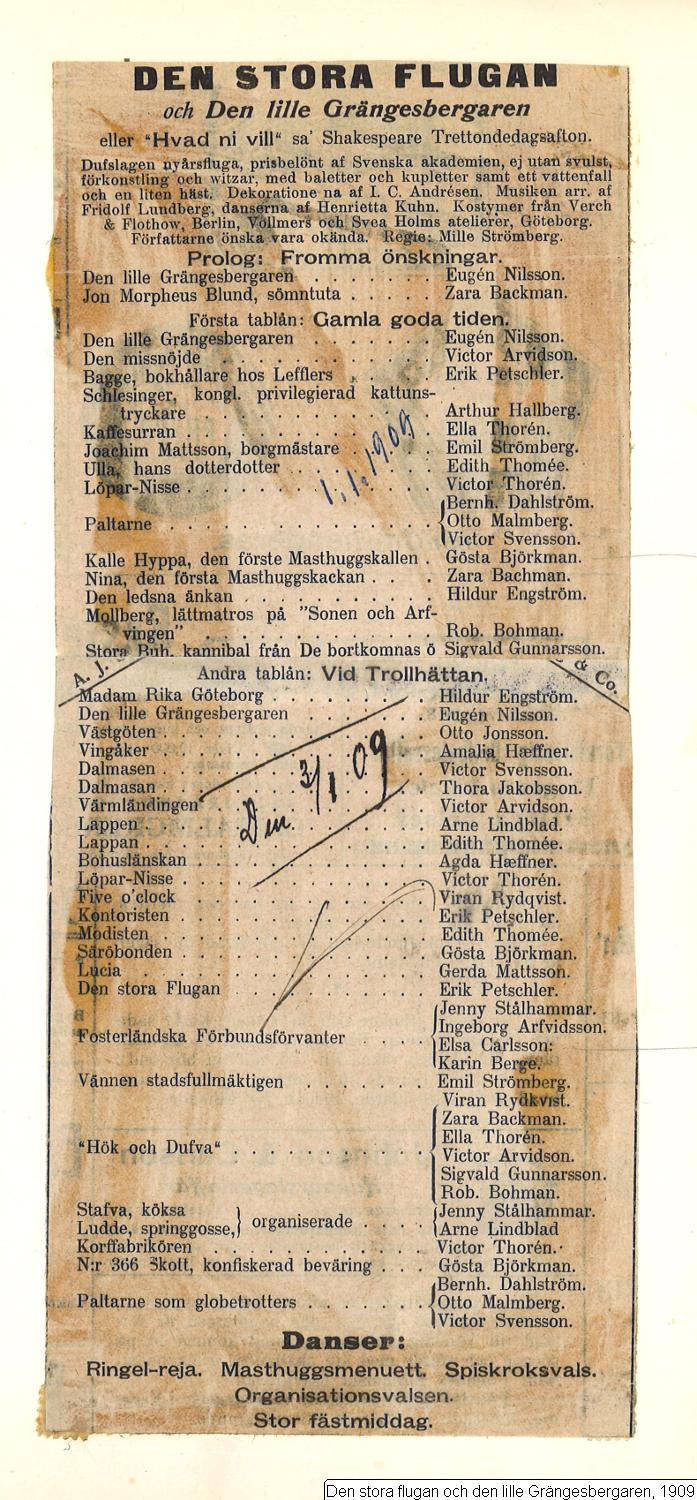 DEN STORA FLUGAN
och Den lille Grängesbergaren
eller "Hvad ni vill" sa' Shakespeare Trettondedagsafton.
Dufslagen nyårsfluga, prisbelönt af Svenska akademien, ej utan svulst,
förkonstling och witzar, med baletter och kupletter samt ett vattenfall
och en liten häst. Dekoratione na af I. C. Andrésen. Musiken arr. af
Fridolf Lundberg, danserna af Henrietta Kuhn. Kostymer från Verch
& Flothow, Berlin, Vollmers och Svea Holms atelierer, Göteborg.
Författarne önska vara okända. Regie: Mille Strömberg.
Prolog: Fromma önskningar.
Den lille Grängesbergaren . . . . . . . Eugén Nilsson.
Jon Morpheus Blund, sömntuta . . . . . Zara Backman.
Första tablån: Gamla goda tiden.
Den lille Grängesbergaren . . . . . . . Eugén Nilsson.
Den missnöjde . . . . . . . . . . . . Victor Arvidson.
Bagge, bokhållare hos Lefflers . . . . . Erik Petschler.
Schlesinger, kongl. privilegierad kattuns-
tryckare . . . . . . . . . . . . Arthur Hallberg.
Kaffesurran . . . . . . . . . . . . . . Ella Thorén.
Joachim Mattsson, borgmästare . . . . . Emil Strömberg.
Ulla, hans dotterdotter . . . . . . . . Edith Thomée.
Löpar-Nisse . . . . . . . . . . . . . . Victor Thorén.
1.1.1909
Paltarne . . . . . . . . . . . . . . . {Bernh. Dahlström.
Otto Malmberg.
Victor Svensson.
Kalle Hyppa, den förste Masthuggskallen . Gösta Björkman.
Nina, den första Masthuggskackan . . . Zara Bachman.
Den ledsna änkan . . . . . . . . . . . Hildur Engström.
Mollberg, lättmatros på "Sonen och Arf-
vingen" . . . . . . . . . . . . . Rob. Bohman.
Stora Buh, kannibal från De bortkomnas ö Sigvald Gunnarsson.
A. J. & Co.
Andra tablån: Vid Trollhättan.
Madam Rika Göteborg . . . . . . . . . Hildur Engström.
Den lille Grängesbergaren . . . . . . . Eugén Nilsson.
Västgöten . . . . . . . . . . . . . . . Otto Jonsson.
Vingåker . . . . . . . . . . . . . . . Amalia Hæffner.
Dalmasen . . . . . . . . . . . . . . . Victor Svensson.
Dalmasan . . . . . . . . . . . . . . . Thora Jakobsson.
Värmländingen . . . . . . . . . . . . . Victor Arvidson.
Den 3/1 09
Lappen . . . . . . . . . . . . . . . . Arne Lindblad.
Lappan . . . . . . . . . . . . . . . . Edith Thomée.
Bohuslänskan . . . . . . . . . . . . . Agda Hæffner.
Löpar-Nisse . . . . . . . . . . . . . . Victor Thorén.
Five o'clock . . . . . . . . . . . . . Viran Rydqvist.
Kontoristen . . . . . . . . . . . . . . Erik Petschler.
Modisten . . . . . . . . . . . . . . . Edith Thomée.
Säröbonden . . . . . . . . . . . . . . Gösta Björkman.
Lucia . . . . . . . . . . . . . . . . Gerda Mattsson.
Den stora Flugan . . . . . . . . . . . Erik Petschler.
Fosterländska Förbundsförvanter . . . . {Jenny Stålhammar.
Ingeborg Arfvidsson.
Elsa Carlsson:
Karin Berge.
Vännen stadsfullmäktigen . . . . . . . Emil Strömberg.
"Hök och Dufva" . . . . . . . . . . . . {Viran Rydkvist.
Zara Backman.
Ella Thorén.
Victor Arvidson.
Sigvald Gunnarsson.
Rob. Bohman.
Stafva, köksa
Ludde, springgosse,} organiserade . . . . {Jenny Stålhammar.
Arne Lindblad
Korffabrikören . . . . . . . . . . . . Victor Thorén.
N:r 366 Skott, konfiskerad beväring . . . Gösta Björkman.
Paltarne som globetrotters . . . . . . . {Bernh. Dahlström.
Otto Malmberg.
Victor Svensson.
Danser:
Ringel-reja. Masthuggsmenuett. Spiskroksvals.
Organisationsvalsen.
Stor fästmiddag.
Den stora flugan och den lille Grängesbergaren, 1909